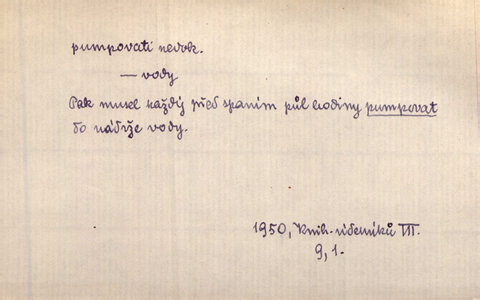 pumpovati nedok.
— vody
Pak musel každý před spaním půl hodiny pumpovat
do nádrže vody.
1950, Knih. úderníků VII.
9, 1.